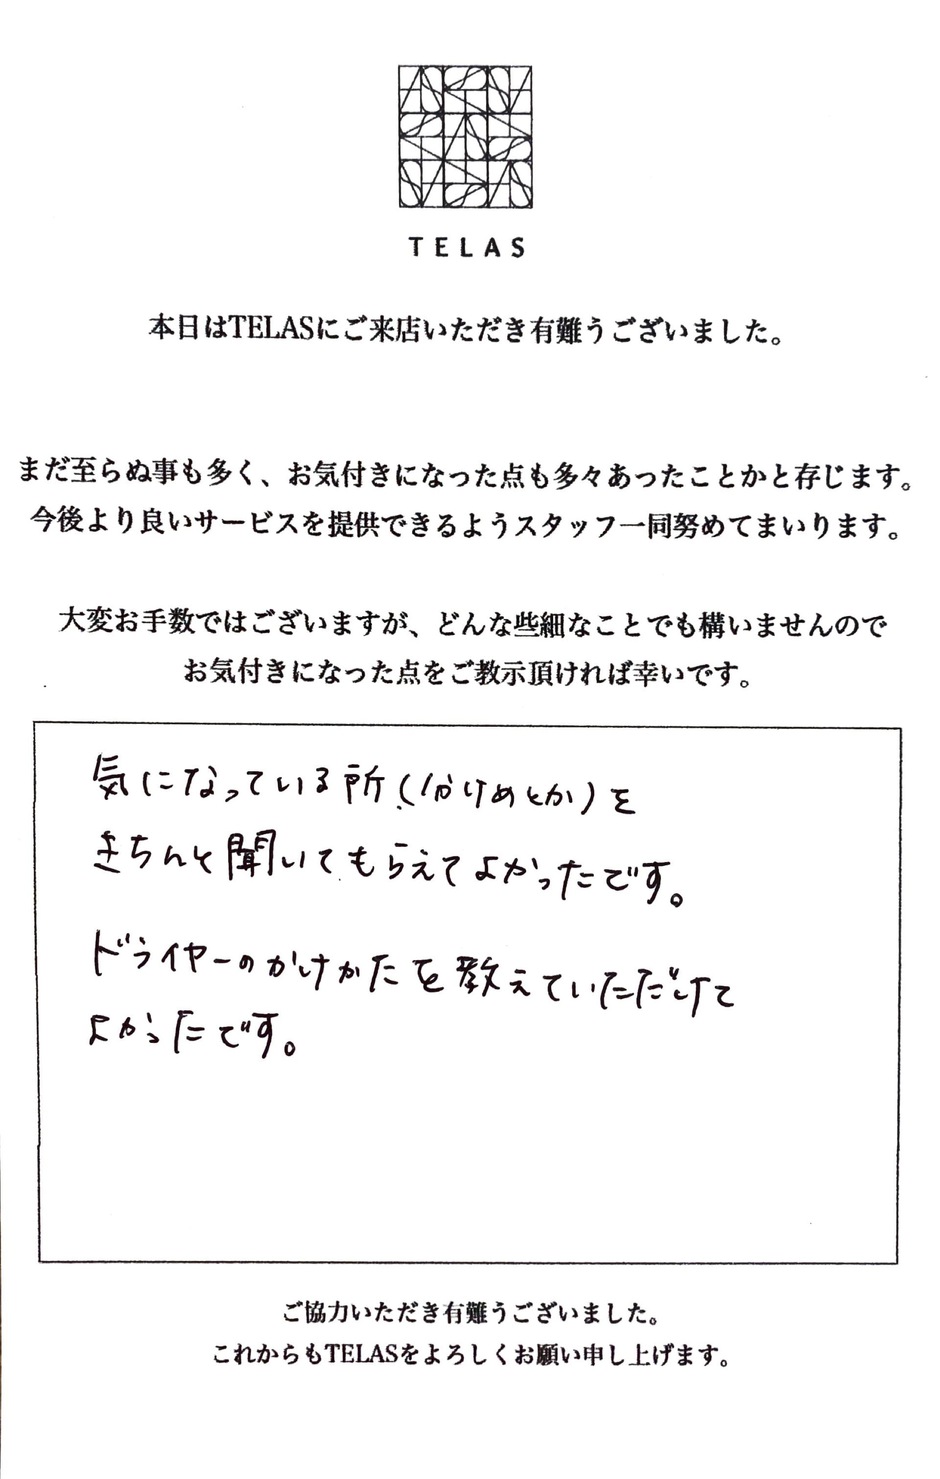 TELAS
本日はTELASにご来店いただき有難うございました。
まだ至らぬ事も多く、お気付きになった点も多々あったことかと存じます。
今後より良いサービスを提供できるようスタッフ一同努めてまいります。
大変お手数ではございますが、どんな些細なことでも構いませんので
お気付きになった点をご教示頂ければ幸いです。
気になっている所(分けめとか)を
きちんと聞いてもらえてよかったです。
ドライヤーのかけかたを教えていただけて
よかったです。
ご協力いただき有難うございました。
これからもTELASをよろしくお願い申し上げます。